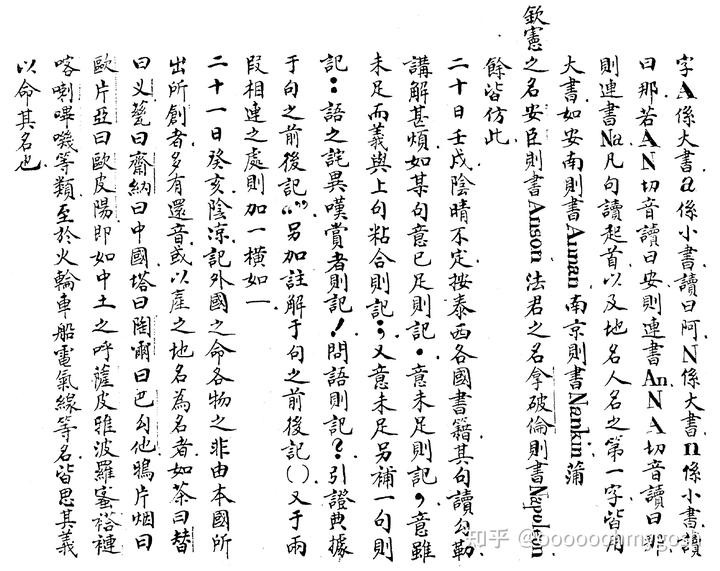 字A係大書a係小書讀曰阿N係大書n係小書讀
曰那若AN切音讀曰安則連書An.NA切音讀曰那
則連書Na凡句讀起首以及地名人名之第一字皆用
大書如安南則書Annan南京則書Nankin蒲
欽憲之名安臣則書Anson法君之名拿破倫則書Napoleon
餘皆仿此
二十日壬戌陰晴不定按泰西各國書籍其句讀勾勒
講解甚煩如某句意已足則記.意未足則記,意雖
未足而義與上句粘合則記;又意未足另補一句則
記:語之詫異嘆賞者則記!問語則記?引證典據
于句之前後記“”另加註解于句之前後記()又于兩
段相連之處則加一橫如—
二十一日癸亥陰涼記外國之命各物之非由本國所
出所創者多有還音或以產之地名為名者如茶曰替
曰義甏曰齋納曰中國塔曰陶爾曰巴勾他鴉片烟曰
歐片亞曰歐皮陽即如中土之呼薩皮雅波羅蜜褡褳
喀喇嗶嘰等類至於火輪車船電氣線等名皆思其義
以命其名也
知乎 @oooooohmygosh